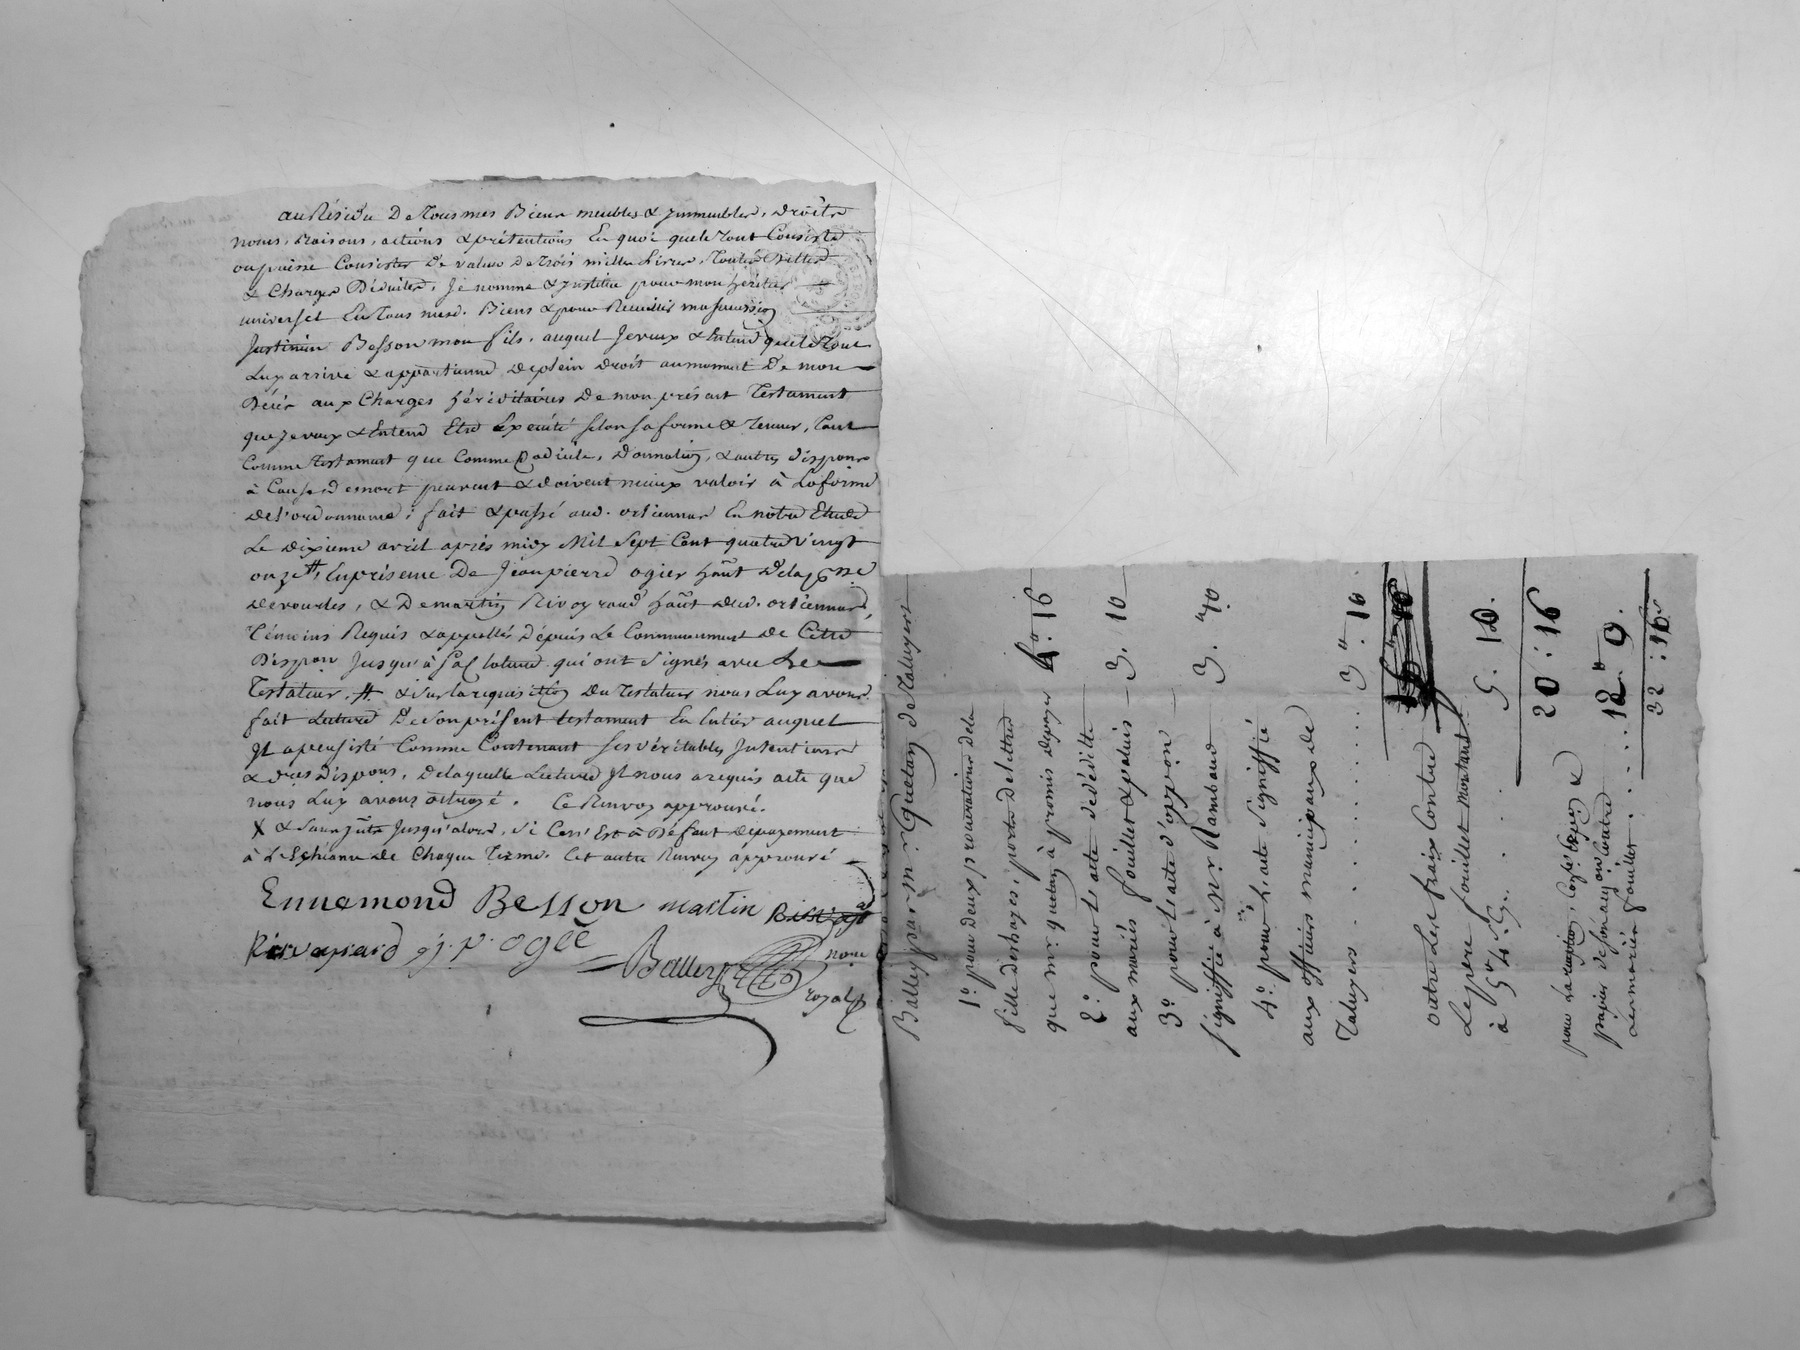 au Résidu De Tous mes Biens meubles & jmmeubles, droits
noms, raisons, actions & prétentions En quoi que le tout Consiste
ou puisse Consister De valeur De trois mille Livres, toutes dettes
& Charges Déduites, je nomme & jnstitue pour mon héritier
universel En Tous mesd. Biens & pour Recueillir ma succession
Besson mon fils, auquel je veux & Entend que le Tout
Luy arrive & appartienne de plein droit au moment De mon
Décès aux Charges héréditaires De mon présent Testament
que je veux & Entend Etre Exécuté selon sa forme & teneur, tant
Comme testament que Comme Codicile, donnation, & autres dispons
à Cause de mort peuvent & doivent mieux valoir à La forme
de l'ordonnance; fait & passé aud. orliennas En notre Etude
Le dixieme avril après midy Mil Sept Cent quatre vingt
onze, En présence De Jean pierre ogier hant de la psse
de vourles, & De martin Rivoyraud hant dud. orliennas,
Témoins Requis & appellés depuis Le Commencement de Cette
Dispon jusqu'à sa Cloture qui ont signés avec Le
Testateur, # & sur la requisition Du Testateur nous Luy avons
fait Lecture De son présent testament En Entier auquel
jl a persisté Comme Contenant ses véritables jntentions
& des dispons, De laquelle Lecture jl nous a requis acte que
nous Luy avons octroyé. Ce Renvoy approuvé.
X & sans jusqu'alors, si Ce n'Est à Défaut de payement
à L'Echéance de Chaque terme. Cet autre Renvoy approuvé
Ennemond Besson martin
j. p. ogié
Balley
notre
royal
Balley par mr. Guetan de taluyers
1°. pour deux procurations de la
fille deshayes, ports de lettres
que mr. guetan à promis de payer 4". 16
2°. pour L'acte de dédite
aux mariés fouillet & paluis — 3. 10
3°. pour L'acte d'oppon —
signiffié à Mr. Rambaud 3." 10
4°. pour L'acte signiffié
aux officiers municipaux de
Taluyers . . . . . . . . . . 3". 10.
outre Les frais Contre
Le pere fouillet montant
à 5" 4 s. . . . . . 5. 10.
20 : 16
pour La
papier
Les mariés fouillet . . . . . 12." 0.
32 : 16